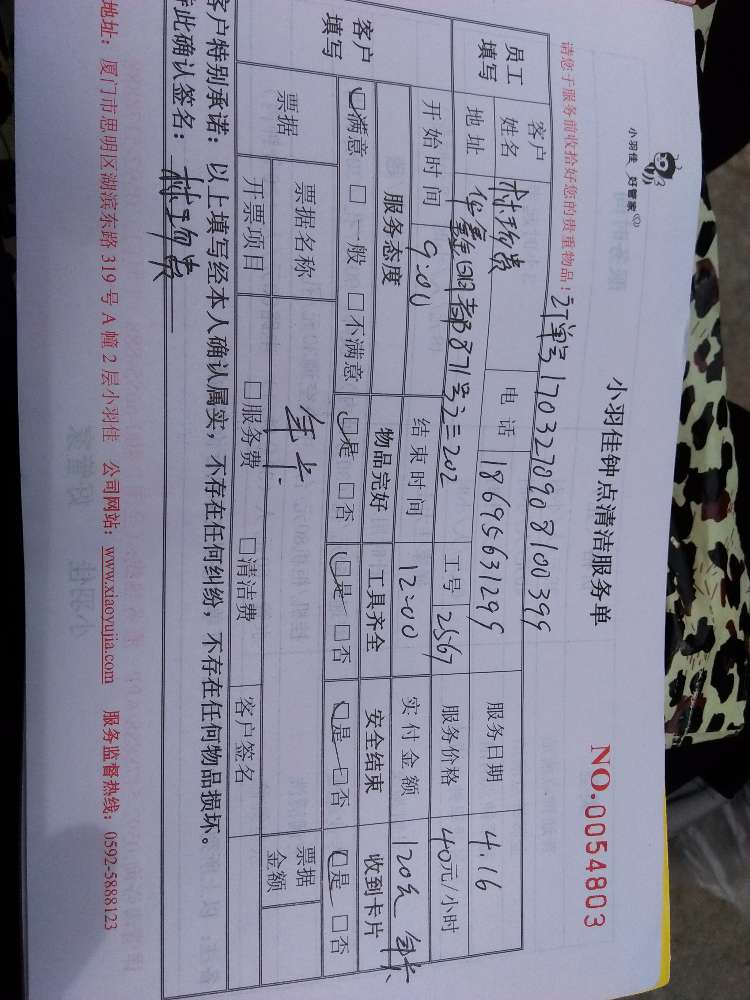 小羽佳 好管家
小羽佳钟点清洁服务单
NO.0054803
请您于服务前收拾好您的贵重物品！
订单号1703270908100399
员工填写
客户姓名
电话 18695631299
服务日期 4.16
地址
明都871号之三202
工号 2567
服务价格 40元/小时
开始时间 9:00
结束时间 12:00
实付金额 120元 年卡
客户填写
服务态度 物品完好 工具齐全 安全结束 收到卡片
□满意 □一般 □不满意 □是 □否 □是 □否 □是 □否 □是 □否
票据
票据名称 年卡.
票据金额
开票项目 □服务费 □清洁费
客户签名
客户特别承诺：以上填写经本人确认属实，不存在任何纠纷，不存在任何物品损坏。
特此确认签名：
地址：厦门市思明区湖滨东路 319 号 A 幢 2 层小羽佳 公司网站：www.xiaoyujia.com 服务监督热线：0592-5888123